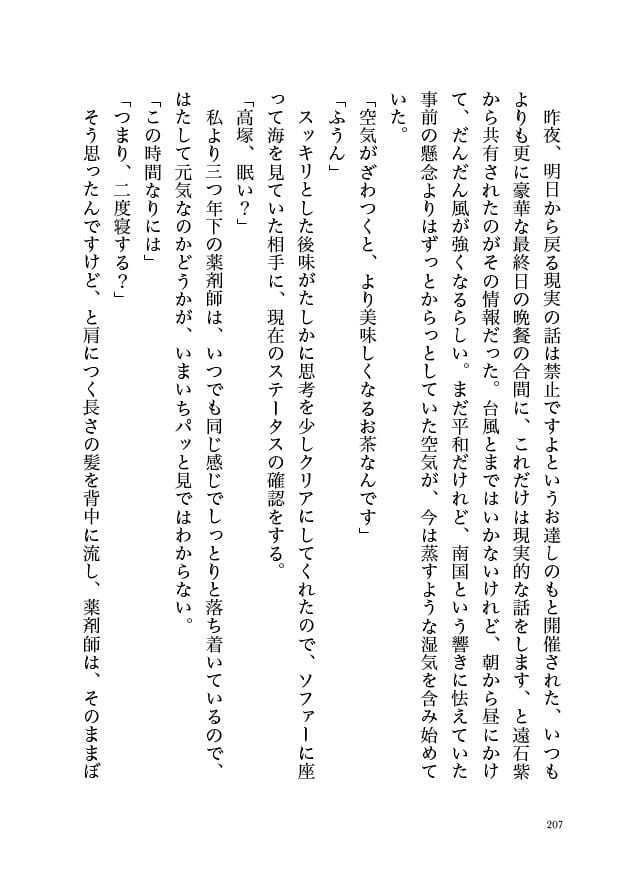 昨夜、明日から戻る現実の話は禁止ですよというお達しのもと開催された、いつも
よりも更に豪華な最終日の晩餐の合間に、これだけは現実的な話をします、と遠石紫
から共有されたのがその情報だった。台風とまではいかないけれど、朝から昼にかけ
て、だんだん風が強くなるらしい。まだ平和だけれど、南国という響きに怯えていた
事前の懸念よりはずっとからっとしていた空気が、今は蒸すような湿気を含み始めて
いた。
「空気がざわつくと、より美味しくなるお茶なんです」
「ふうん」
スッキリとした後味がたしかに思考を少しクリアにしてくれたので、ソファーに座
って海を見ていた相手に、現在のステータスの確認をする。
「高塚、眠い？」
私より三つ年下の薬剤師は、いつでも同じ感じでしっとりと落ち着いているので、
はたして元気なのかどうかが、いまいちパッと見ではわからない。
「この時間なりには」
「つまり、二度寝する？」
そう思ったんですけど、と肩につく長さの髪を背中に流し、薬剤師は、そのままぼ
207